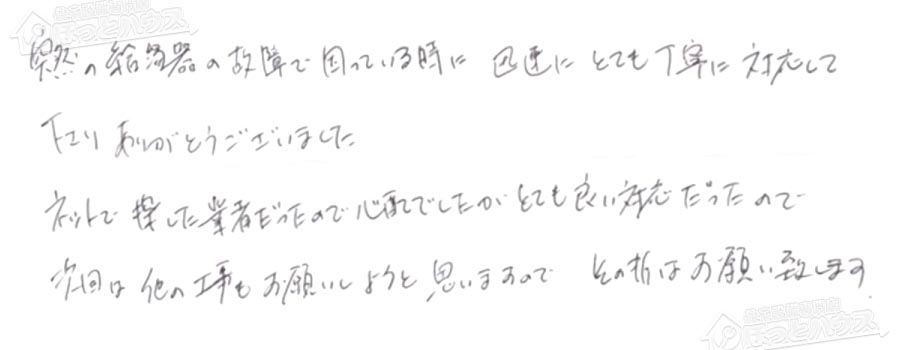 突然の給湯器の故障で困っている時に 迅速に とても丁寧に対応して
下さり ありがとうございました
ネットで探した業者だったので心配でしたがとても良い対応だったので
次回は他の工事もお願いしようと思いますので その折はお願い致します
ほっとハウス
ほっとハウス